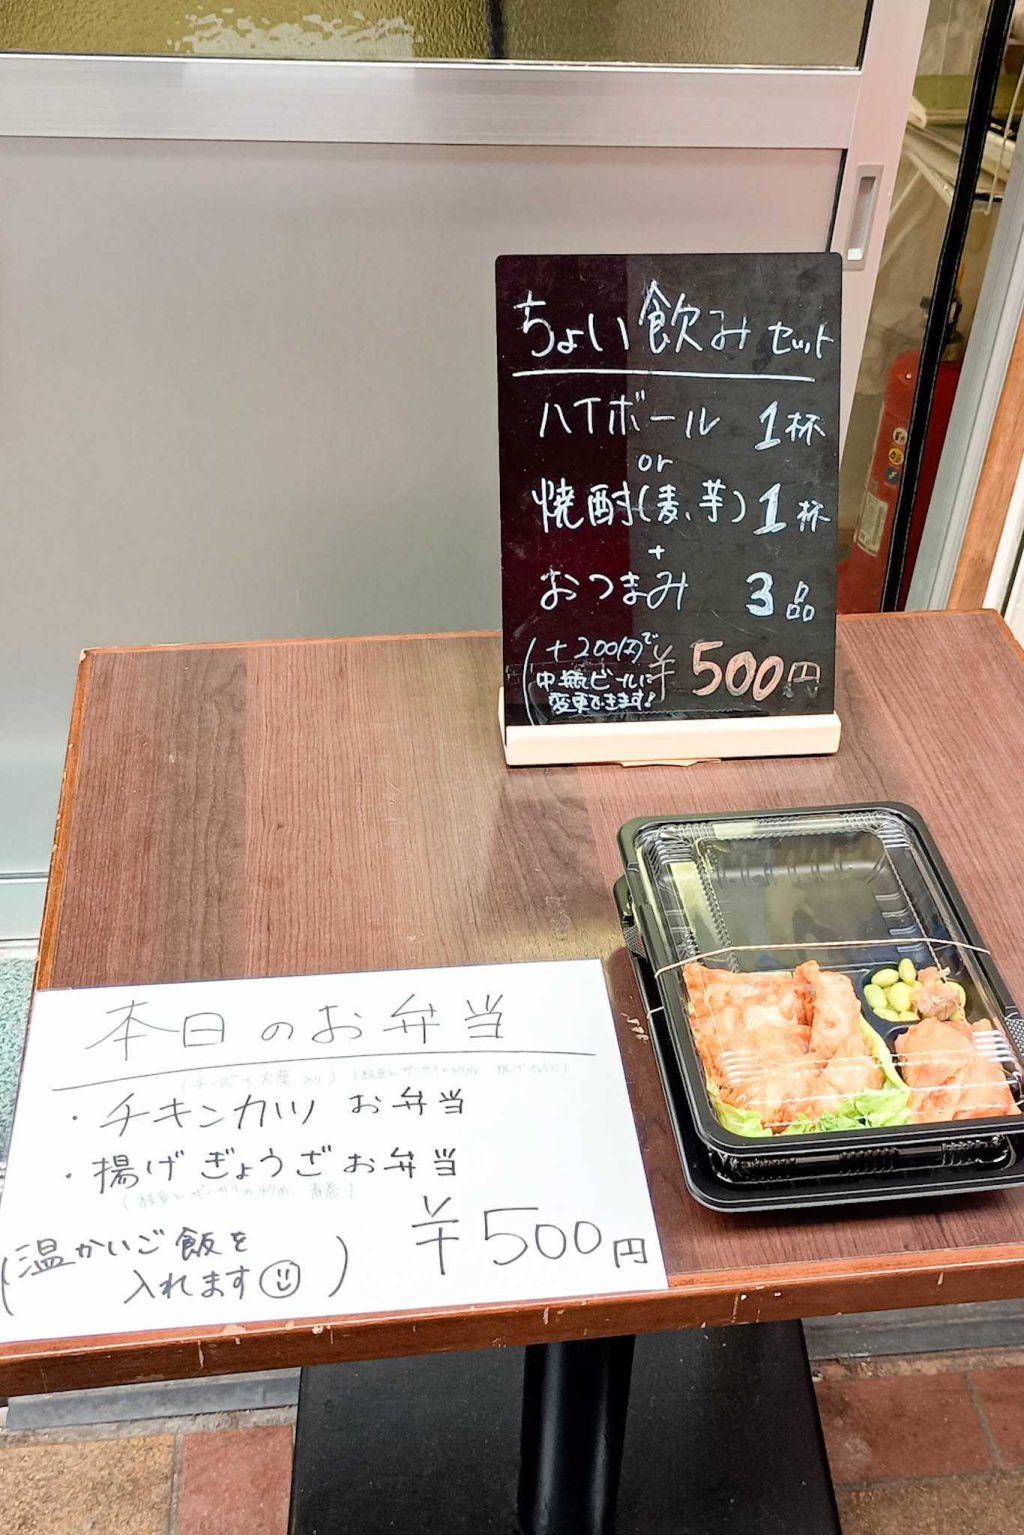 ちょい飲みセット
ハイボール 1杯
or
焼酎(麦、芋) 1杯
+
おつまみ 3品
(+200円で
中瓶ビールに
変更できます!
¥500円
本日のお弁当
(チーズ+大葉入り)
・チキンカツ お弁当
・揚げぎょうざお弁当
¥500円
(温かいご飯を
入れます)